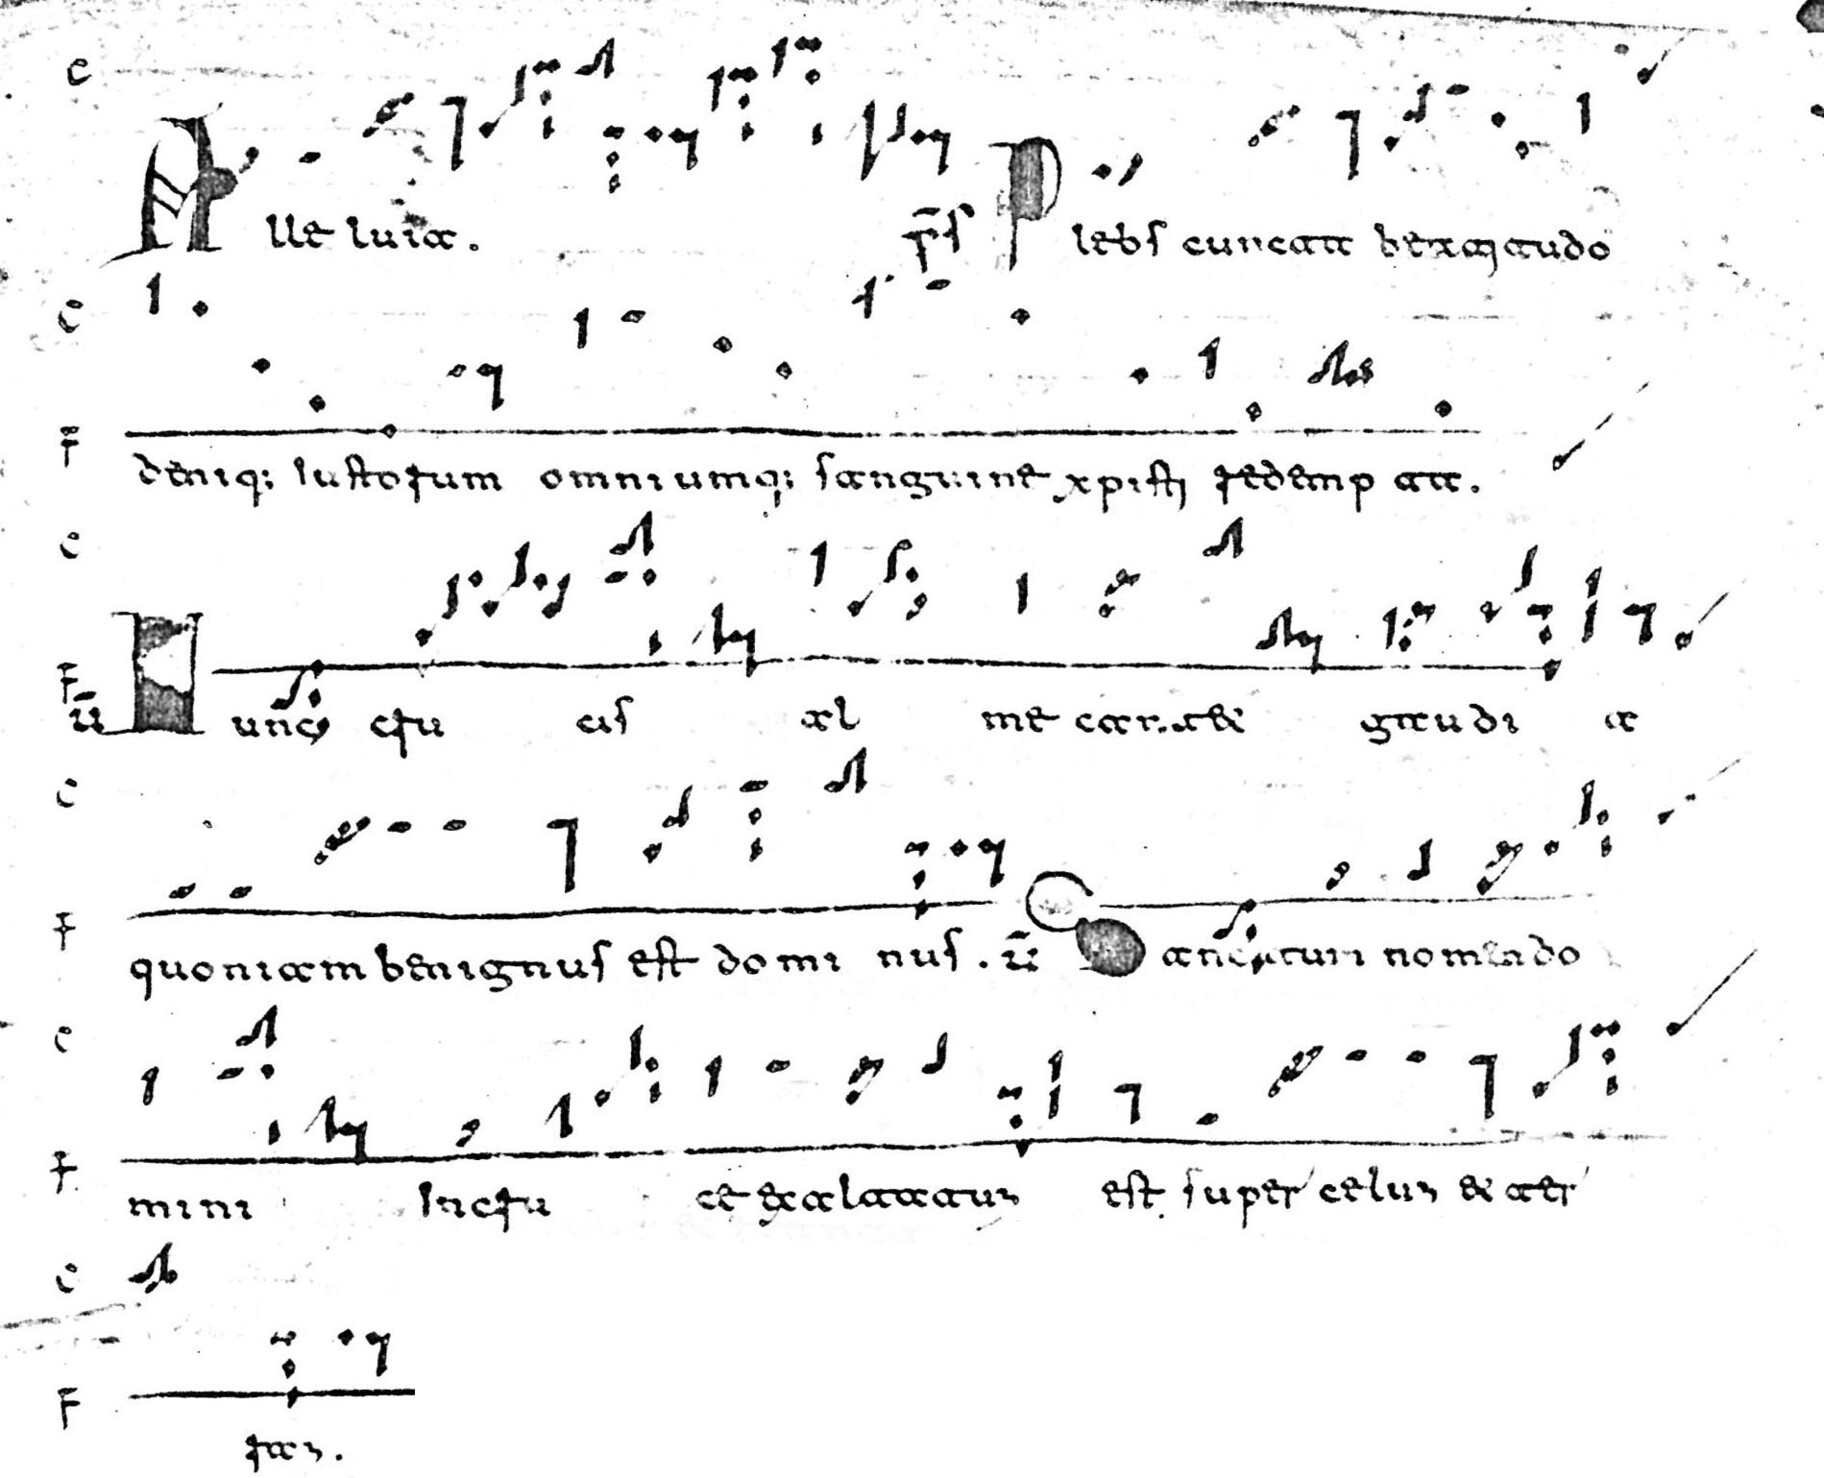 Alleluia. ps Plebs cuncta bexaudo
deniq; iustorum omniumq; sanguine xpisti redempta.
v Nunc cru cis al me canta& gaudi a
quoniam benignus est domi nus. v Sancturi nomen do
mini in cru ce exaltatum est super celum & ter
ram.